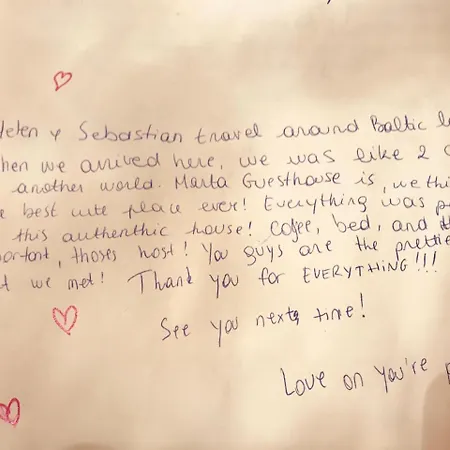 Helen y Sebastian travel around Baltic
when we arrived here, we was like 2
another world. Marta Guesthouse is, we
best cute place ever! Everything was
this authenthic house! Cofee, bed, and
thoses host! You guys are the
we met! Thank you for EVERYTHING!!!
See you nexts time!
Love on you're